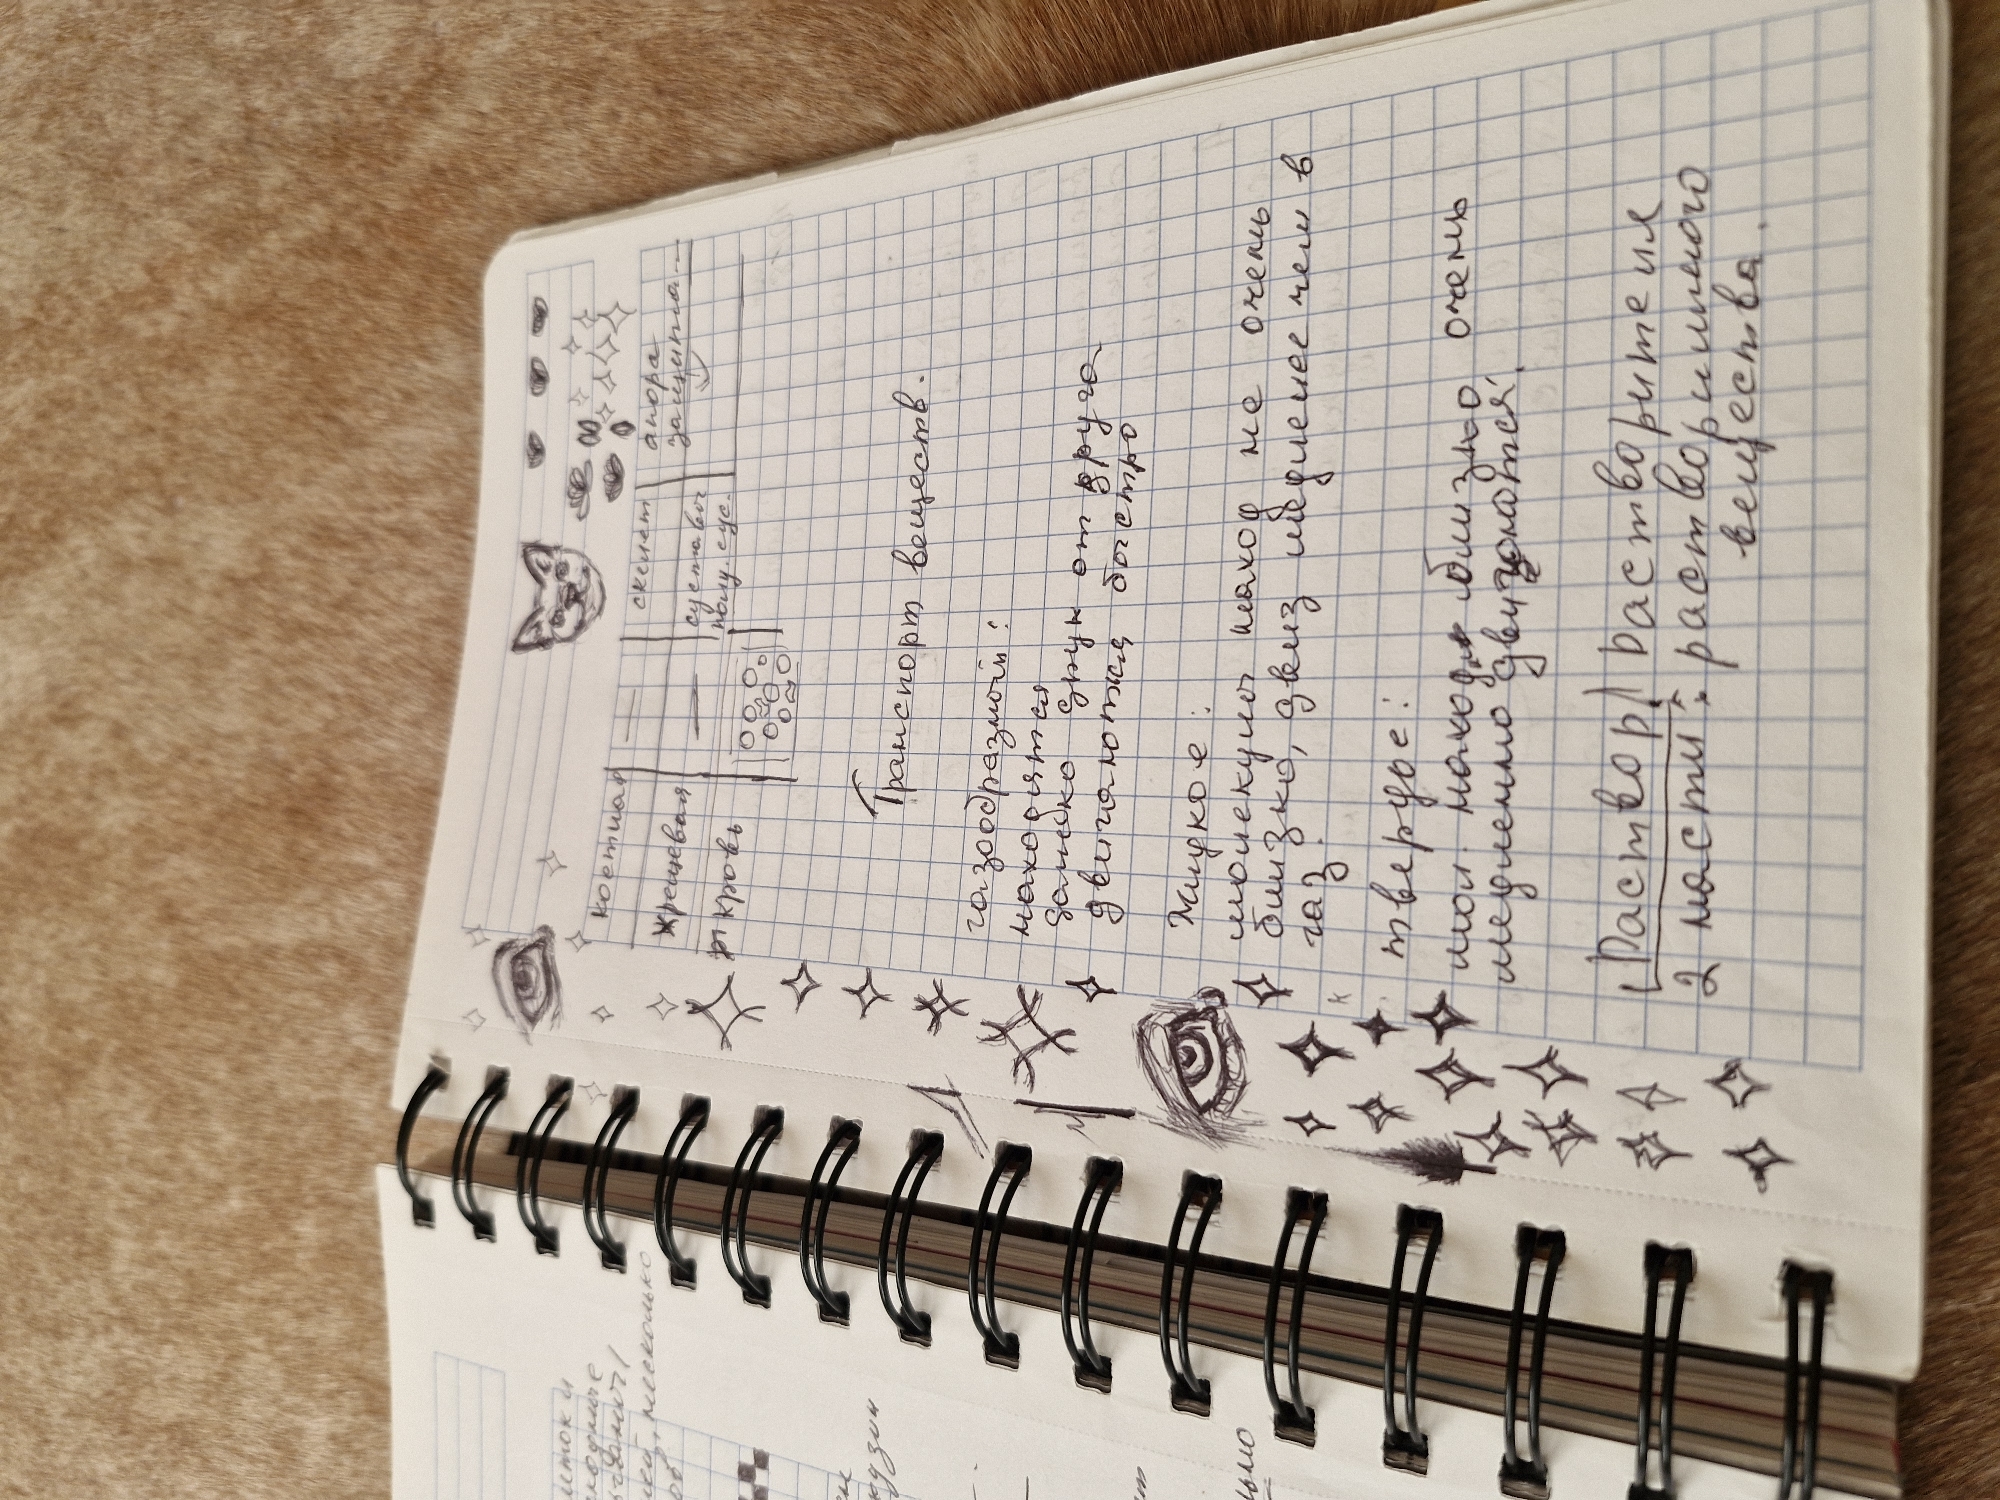 костная — скелет апора
защита
жрещевая — суставы
полу. сус.
кровь
Транспорт веществ.
газообразной:
находится
далеко друг от друга
двигаются быстро
Жидкое:
молекулы наход не очень
близко, двиг медленее чем в
газ
твердое:
мол. наход близко очень
медленно двигаются.
Раствор растворителя
2 части: растворимого
вещества.
несколько